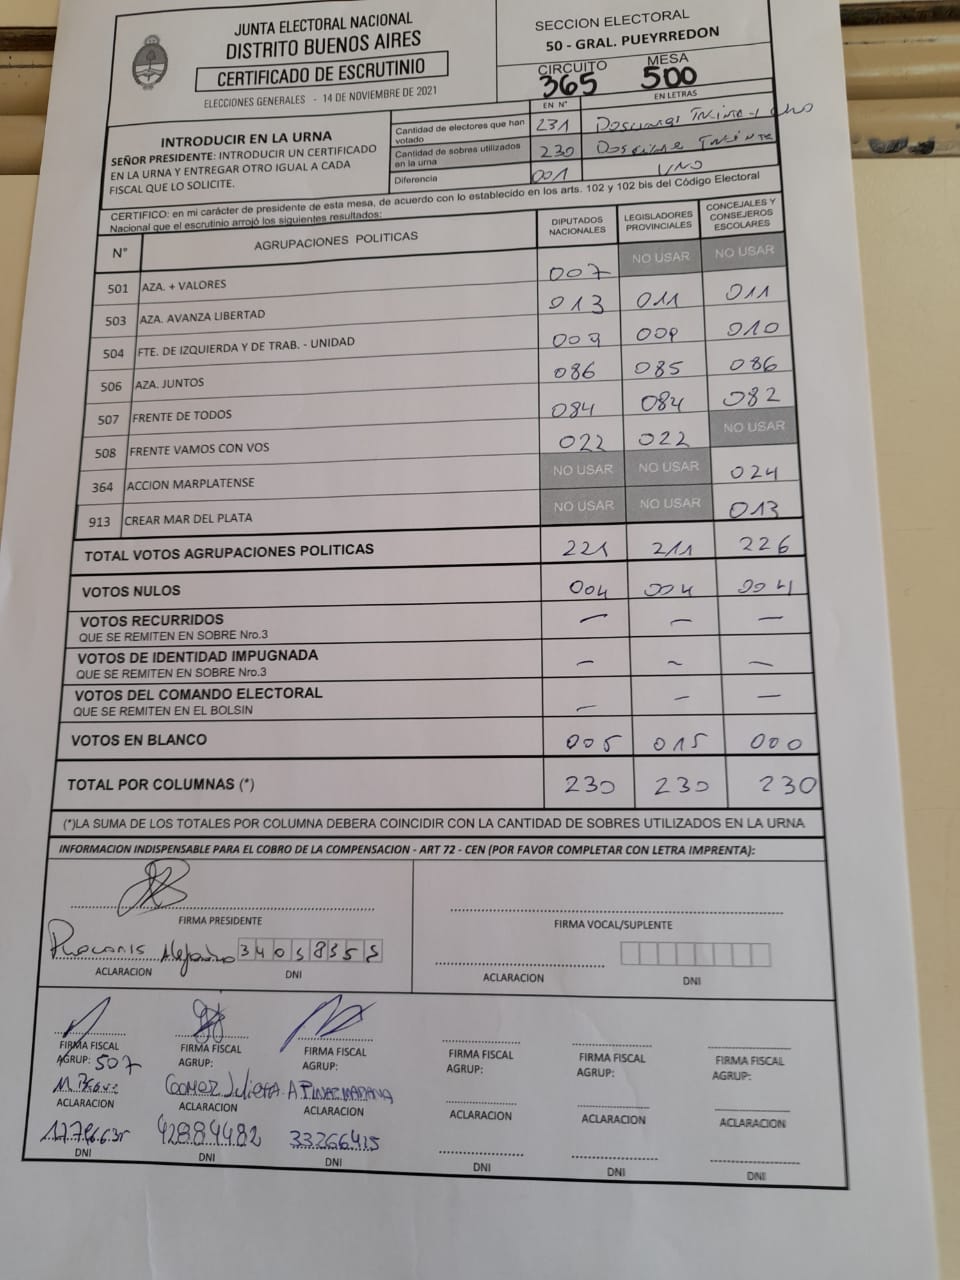 JUNTA ELECTORAL NACIONAL
DISTRITO BUENOS AIRES
CERTIFICADO DE ESCRUTINIO
ELECCIONES GENERALES - 14 DE NOVIEMBRE DE 2021
SECCION ELECTORAL
50 - GRAL. PUEYRREDON
CIRCUITO MESA
365 500
INTRODUCIR EN LA URNA
SEÑOR PRESIDENTE: INTRODUCIR UN CERTIFICADO
EN LA URNA Y ENTREGAR OTRO IGUAL A CADA
FISCAL QUE LO SOLICITE.
EN N° EN LETRAS
Cantidad de electores que han votado 231
Cantidad de sobres utilizados en la urna 230
Diferencia 001 UNO
CERTIFICO: en mi carácter de presidente de esta mesa, de acuerdo con lo establecido en los arts. 102 y 102 bis del Código Electoral
Nacional que el escrutinio arrojó los siguientes resultados:
N° AGRUPACIONES POLITICAS DIPUTADOS NACIONALES LEGISLADORES PROVINCIALES CONCEJALES Y CONSEJEROS ESCOLARES
501 AZA. + VALORES 007 NO USAR NO USAR
503 AZA. AVANZA LIBERTAD 013 011 011
504 FTE. DE IZQUIERDA Y DE TRAB. - UNIDAD 009 009 010
506 AZA. JUNTOS 086 085 086
507 FRENTE DE TODOS 084 084 082
508 FRENTE VAMOS CON VOS 022 022 NO USAR
364 ACCION MARPLATENSE NO USAR NO USAR 024
913 CREAR MAR DEL PLATA NO USAR NO USAR 013
TOTAL VOTOS AGRUPACIONES POLITICAS 221 211 226
VOTOS NULOS 004 004 004
VOTOS RECURRIDOS — — —
QUE SE REMITEN EN SOBRE Nro.3
VOTOS DE IDENTIDAD IMPUGNADA — — —
QUE SE REMITEN EN SOBRE Nro.3
VOTOS DEL COMANDO ELECTORAL — — —
QUE SE REMITEN EN EL BOLSIN
VOTOS EN BLANCO 005 015 000
TOTAL POR COLUMNAS (*) 230 230 230
(*)LA SUMA DE LOS TOTALES POR COLUMNA DEBERA COINCIDIR CON LA CANTIDAD DE SOBRES UTILIZADOS EN LA URNA
INFORMACION INDISPENSABLE PARA EL COBRO DE LA COMPENSACION - ART 72 - CEN (POR FAVOR COMPLETAR CON LETRA IMPRENTA):
FIRMA PRESIDENTE FIRMA VOCAL/SUPLENTE
Alejandro
ACLARACION DNI ACLARACION DNI
FIRMA FISCAL FIRMA FISCAL FIRMA FISCAL FIRMA FISCAL FIRMA FISCAL FIRMA FISCAL
AGRUP: 507 AGRUP: AGRUP: AGRUP: AGRUP: AGRUP:
GOMEZ Julieta A
ACLARACION ACLARACION ACLARACION ACLARACION ACLARACION ACLARACION
42884482 33266415
DNI DNI DNI DNI DNI DNI